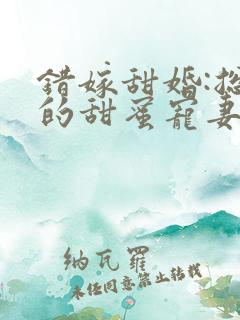 錯嫁甜婚:
的甜蜜寵妻
納瓦羅
未經同意禁止轉載